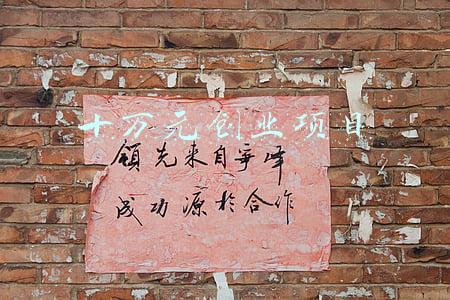 十万元创业项目
领先来自争峰
成功源於合作